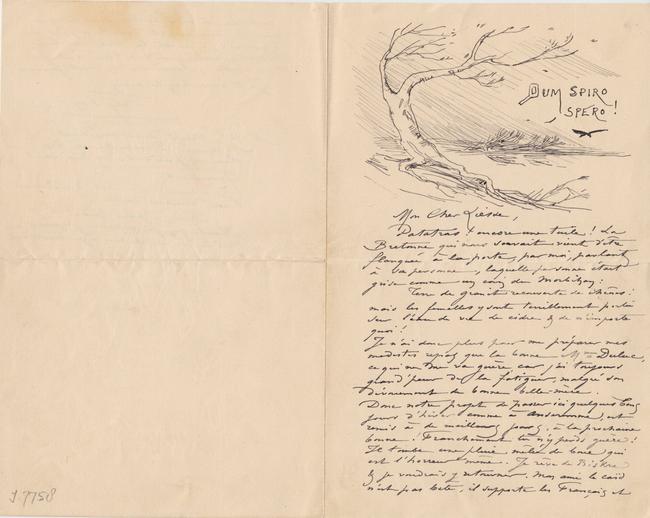 DUM SPIRO
SPERO!
Mon Cher Liesse,
Patatras! encore une tuile! La
Bretonne qui nous servait vient d'être
flanquée à la porte, par moi, parlant
à sa personne, laquelle personne était
grise comme un coin du Morbihan:
Terre de granit recouverte de chênes!
mais les femelles y sont terriblement portées
sur l'eau de vie de cidre & de n'importe
quoi!
Je n'ai donc plus pour me préparer mes
modestes repas que la bonne Mme Duluc,
ce qui ne me va guère car j'ai toujours
grand'peur de la fatiguer, malgré son
dévouement de bonne belle mère.
Donc notre projet de passer ici quelques bons
jours d'hiver comme à Anseremme, est
remis à de meilleurs jours, à la prochaine
bonne! Franchement tu n'y perds guère!
Il tombe une pluie mêlée de boue qui
est l'horreur même. Je rêve de Biskra
& je voudrais y retourner. Mon ami le caïd
n'est pas bête, il supporte les Français et
J.7758